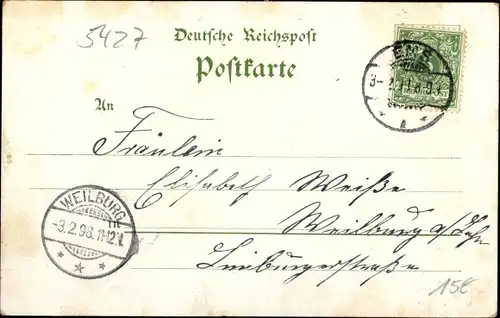 5427
Deutsche Reichspost
Postkarte
EMS
An
Fräulein
Elisabeth Weiße
Weilburg a/Lahn
Limburgerstraße
WEILBURG
-3.2.98.11-12.V.
15€